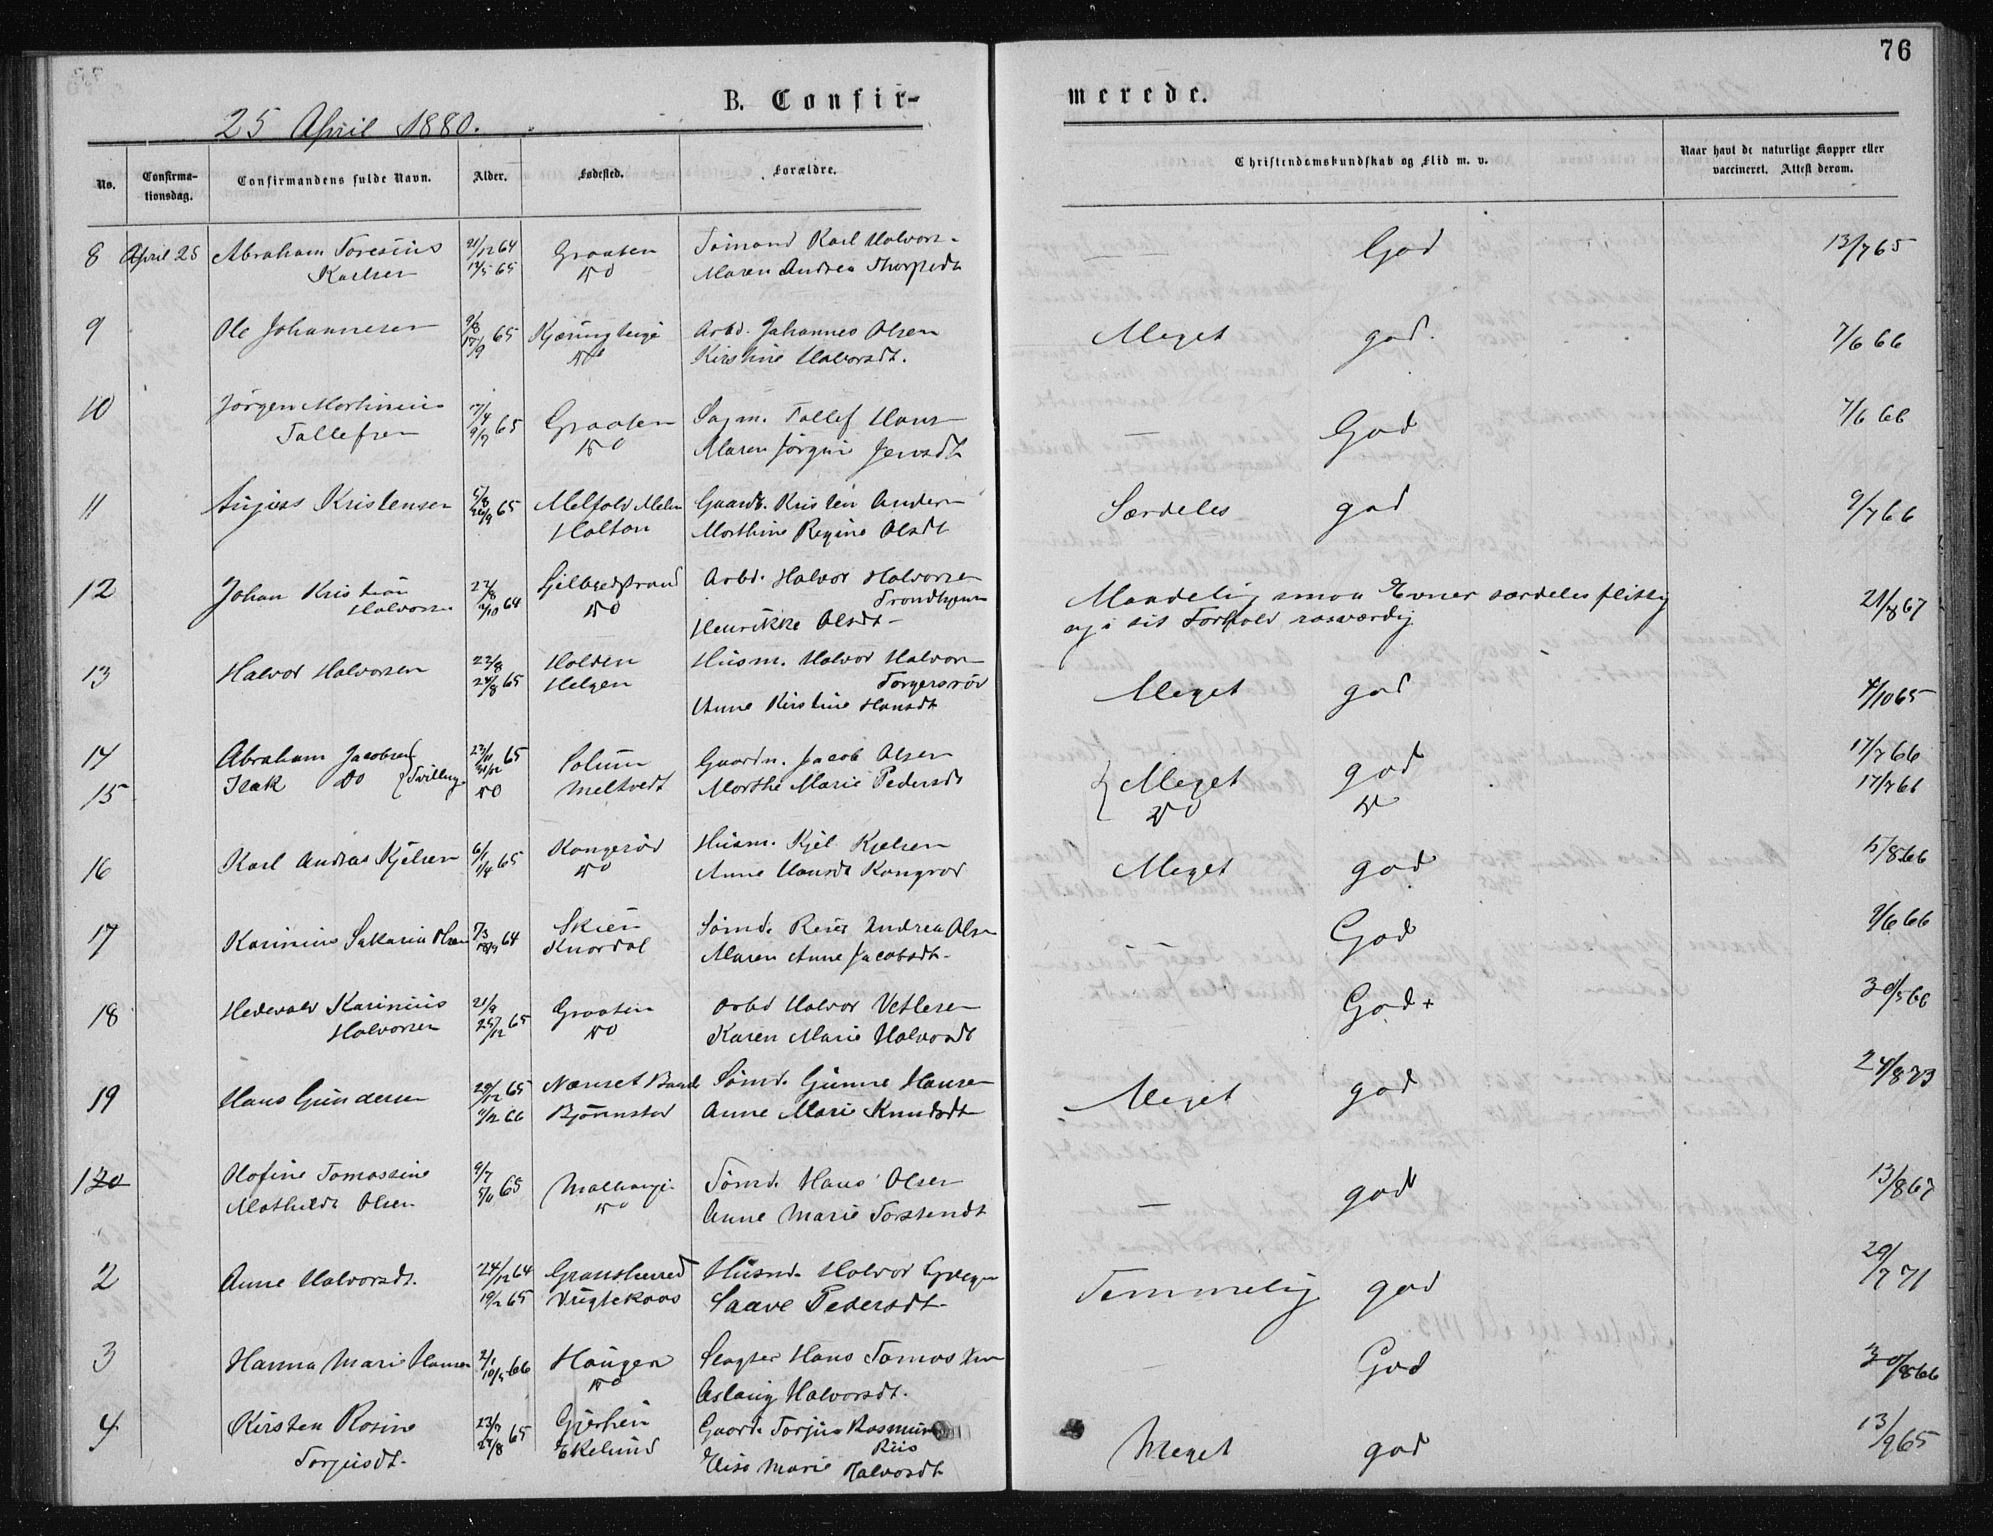 76
B. Confirmerede.
25 April 1880.
No.
Confirmationsdag.
Confirmandens fulde Navn.
Alder.
Fødested.
Forældre.
Christendomskundskab og Flid m. v.
Naar havt de naturlige Kopper eller vaccineret. Attest derom.
8 April 25 Abraham Toresius 21/12 64 Graaten Sømand Karl Halvors-
Karlsen 14/5 65 Do Maren Andrea God 13/7 65
9 Ole Johannesen 9/8 17/9 65 Arbd. Johannes Olsen
Do Kirstine Halvorsdt. Meget god. 7/6 66
10 Jørgen Martinius 17/4 9/7 65 Graaten Sagm. Tallef Hans-
Tallefsen Do Maren Jørgine Jensdt — God 7/6 66
11 Kristensen 5/8 65 Melfald Melum Gaardb. Kristen Anders-
Holtan Morthine Regine Olsdt Særdeles god 9/7 66
12 Johan Kristian 22/8 64 Arbd. Halvor Halvorsen
Halvorsen 2/10 Do Trondhjem
Henrikke Olsdt- Maadelig smaa Evner særdeles flittig 21/8 67
og i sit Forhold rosværdig
13 Halvor Halvorsen 22/8 Holden Husm. Halvor Halvors-
24/8 65 Helgen Torgersrød
Anne Kirstine Hansdt Meget god 4/10 65
14 Abraham Jacobsen 65 Solum Gaardm. Jacob Olsen Meget god 17/7 66
15 Isak Do Tvilling Do Meltvedt Morthe Marie Pedersdt Do Do 17/7 66
16 Karl Andreas Kjelsen 6/1 1/4 65 Kongerød Husm. Kjel Kjelsen
Do Anne Hansdt Kongrød Meget god 15/8 66
17 Karinius Sakarias Olsen 7/3 64 Skien Sømd. Andreas Olsen
Knardal Maren Anne Jacobsdt- God 9/6 66
18 Hedevald Karinius 21/9 Graaten Arbd Halvor Vetlesen
Halvorsen 25/12 65 Do Karen Marie Halvorsdt God + 30/5 66
19 Hans Gundersen 29/12 65 Sømd. Gunne Hansen
4/2 66 Bjørnstad Anne Marie Knudsdt Meget god 24/8 73
120 Olofine Tomassine 9/7 Sømd. Hans Olsen
Mathilde Olsen 5/11 65 Do Anne Marie Torstendt — god 13/8 67
2 Anne Halvorsdt. 24/12 64 Gransherred Husmd. Halvor
19/2 65 Saave Pedersdt- Temmelig god 29/7 71
3 Hanna Marie Hansen 2/1 10/5 66 Haugen Slagter Hans Tomas
Do Aslaug Halvorsdt. — God 30/8 66
4 Kirsten Rosine 23/7 Gjerpen Gaard. Torjus Rasmus
Torjusdt. 27/8 65 Ekelund Riis
Marie Halvorsdt Meget god 13/9 65